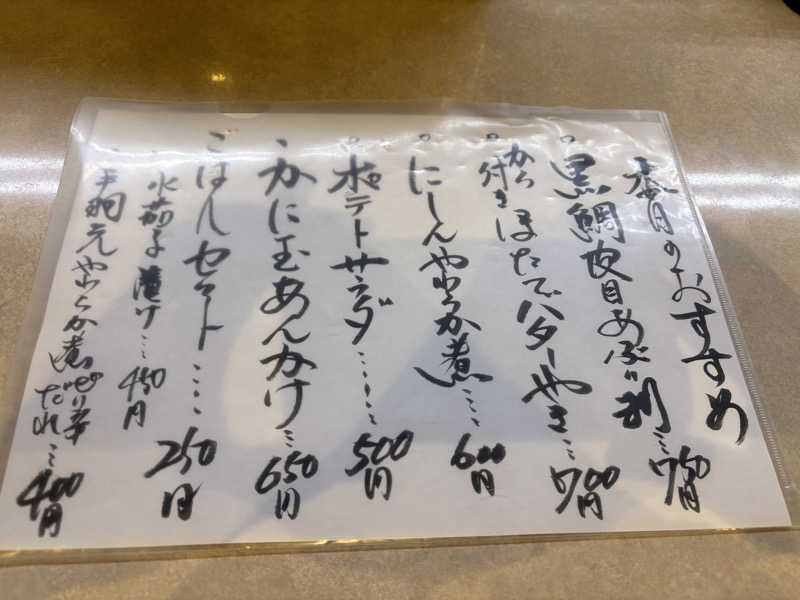 本日のおすすめ
。黒鯛皮目あぶり刺…750円
。から付きほたてバターやき…700円
。にしんやわらか煮…600円
。ポテトサラダ……500円
・かに玉あんかけ…650円
ごはんセット……250円
・水茄子漬け…450円
・手羽元やわらか煮ピリ辛だれ…400円